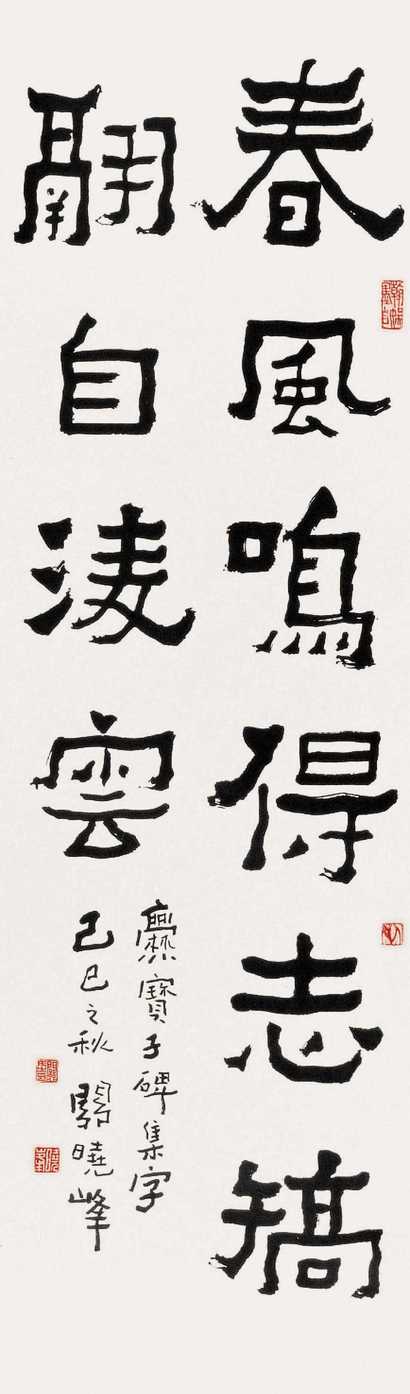 春風鳴得志矯
翮自淩雲
爨寶子碑集字
己巳之秋 曉峰